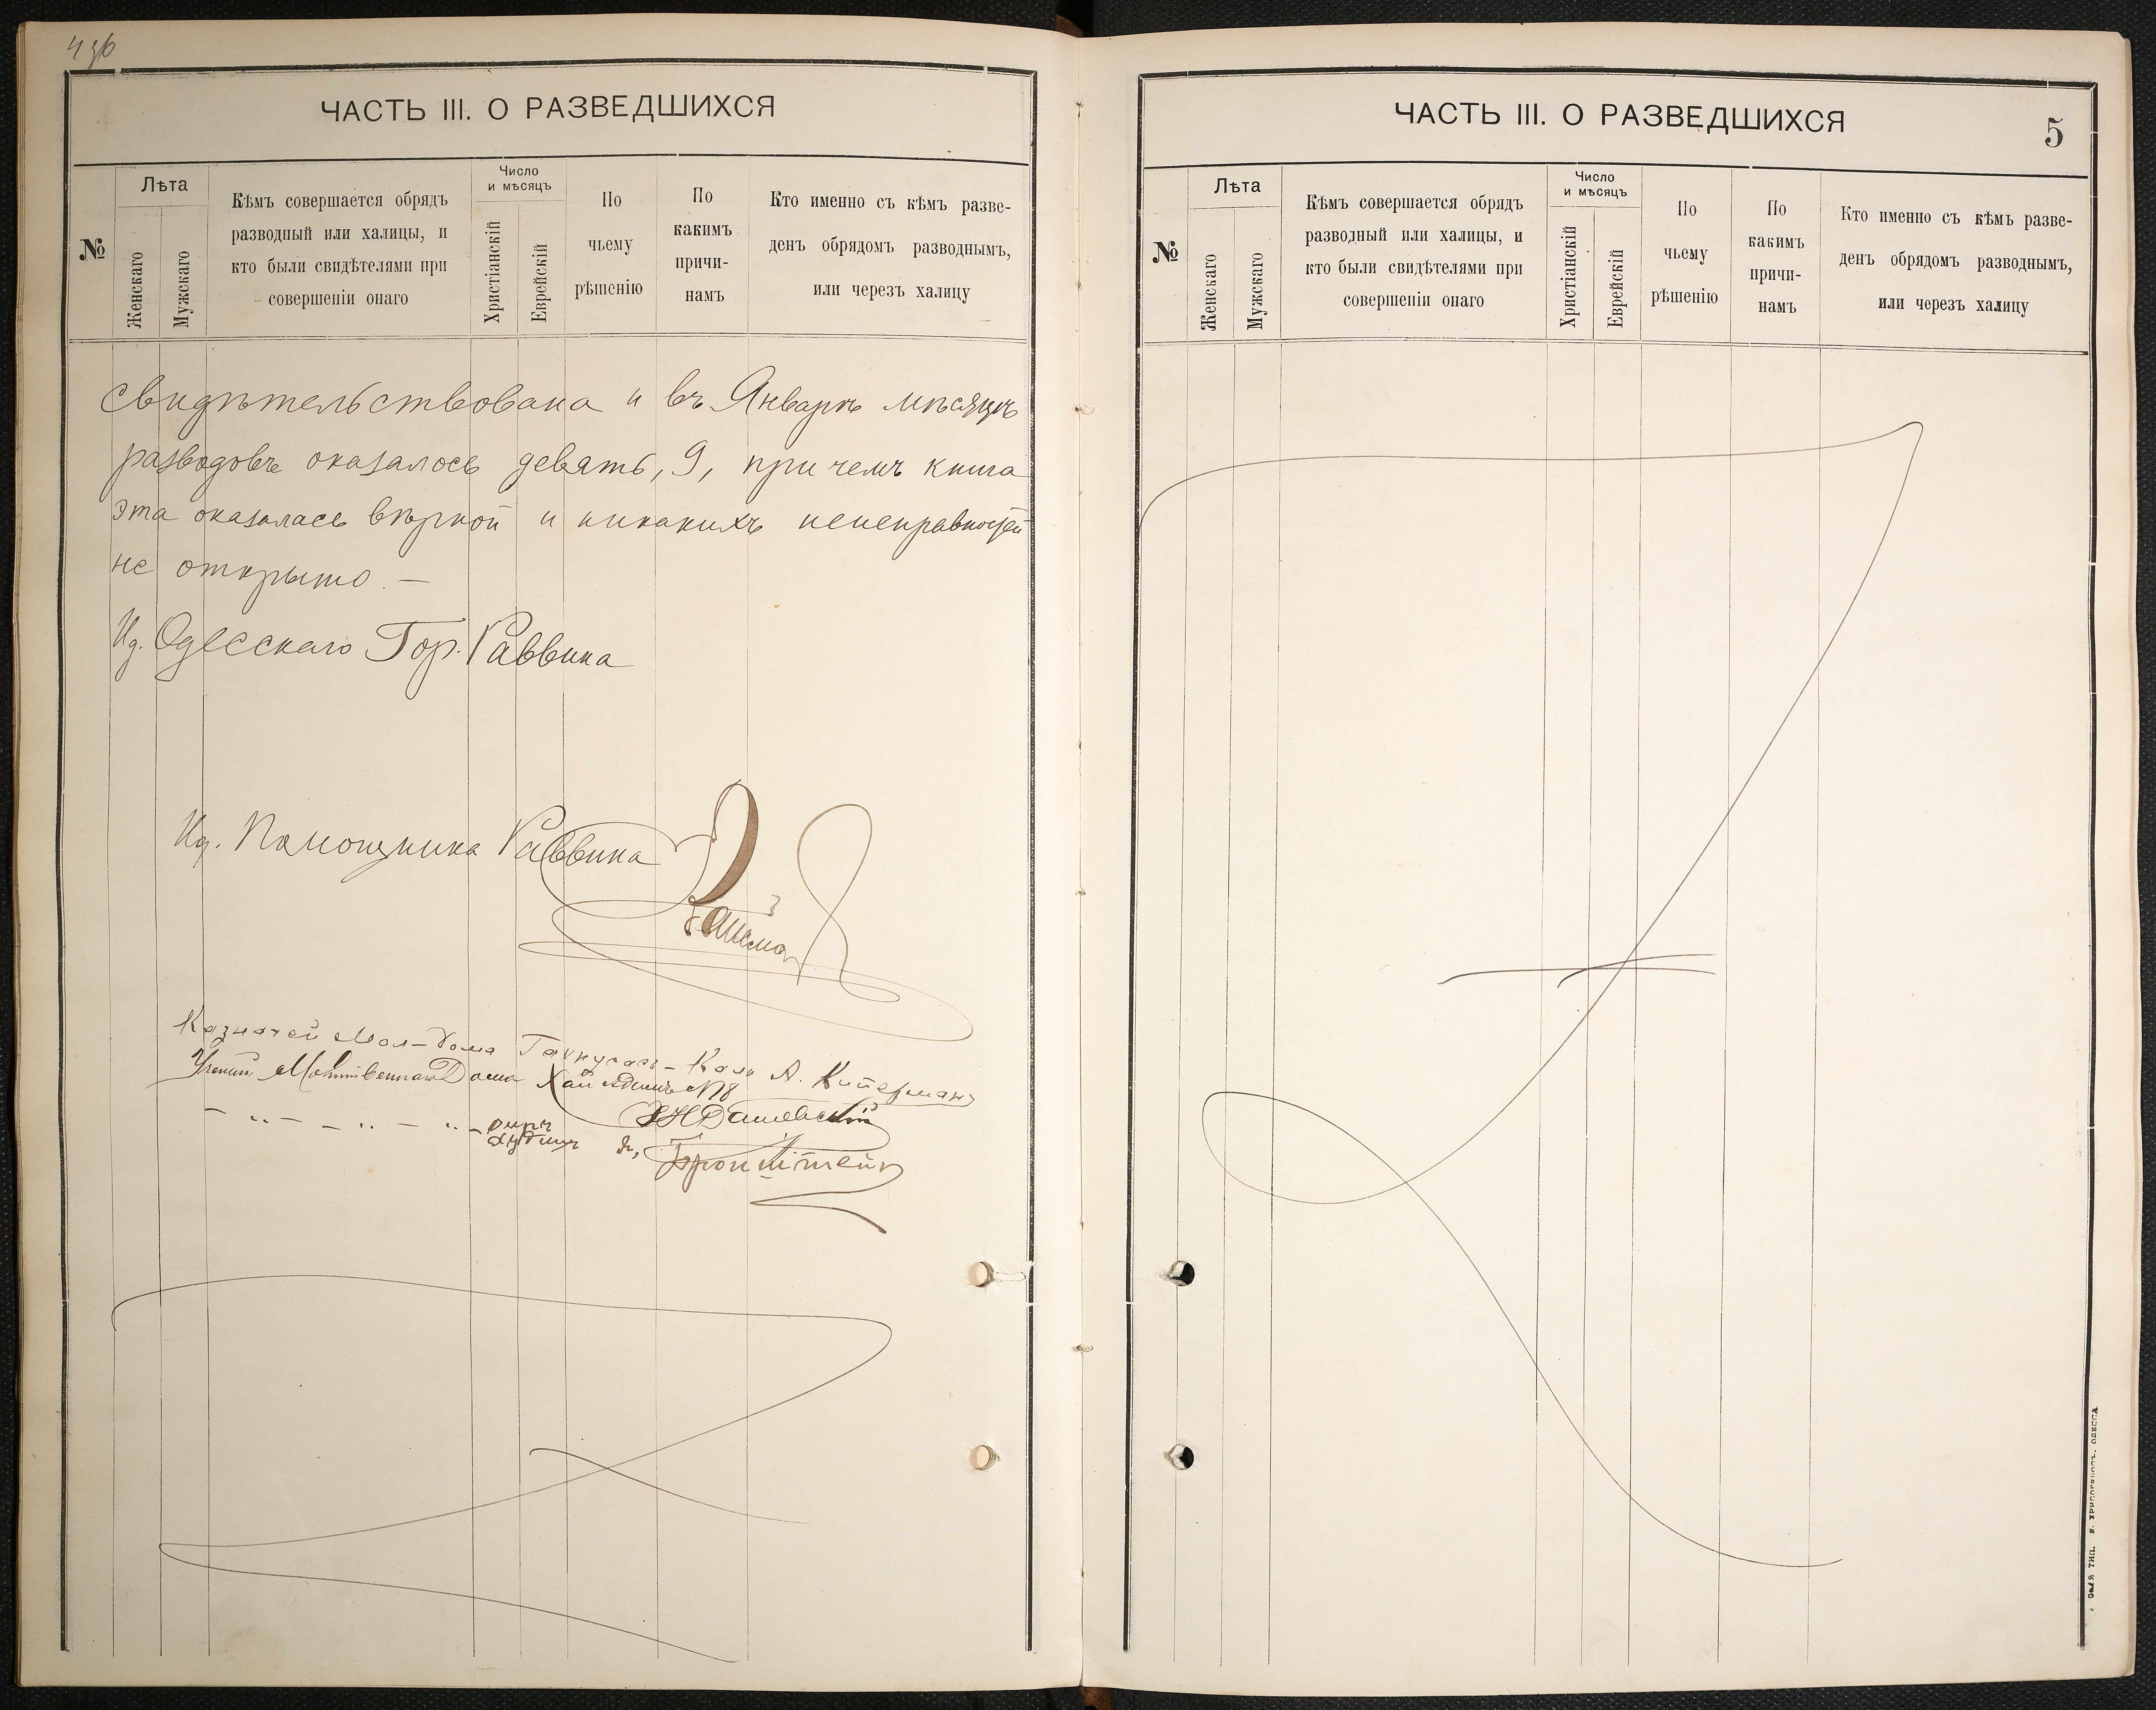 436
ЧАСТЬ III. О РАЗВЕДШИХСЯ
№
Лѣта
Женскаго
Мужскаго
Кѣмъ совершается обрядъ
разводный или халицы, и
кто были свидѣтелями при
совершеніи онаго
Число
и мѣсяцъ
Христіанскій
Еврейскій
По
чьему
рѣшенію
По
какимъ
причи-
намъ
Кто именно съ кѣмъ разве-
денъ обрядомъ разводнымъ,
или черезъ халицу
свидѣтельствована и въ Январѣ мѣсяцѣ
разводовъ оказалось девять, 9, при чемъ книга
эта оказалась вѣрной и никакихъ неисправностей
не открыто. —
Ид. Одесскаго Гор. Раввина
Ид. Помощника Раввина
Казначей Мол-Дома А. Киперманъ
Ученый Молитвеннаго Дома Хаи Адамъ №78
Дашевскій
Бронштейн
ЧАСТЬ III. О РАЗВЕДШИХСЯ
5
№
Лѣта
Женскаго
Мужскаго
Кѣмъ совершается обрядъ
разводный или халицы, и
кто были свидѣтелями при
совершеніи онаго
Число
и мѣсяцъ
Христіанскій
Еврейскій
По
чьему
рѣшенію
По
какимъ
причи-
намъ
Кто именно съ кѣмъ разве-
денъ обрядомъ разводнымъ,
или черезъ халицу
ТИП. Е. ХРИСОГЕЛОСЪ. ОДЕССА